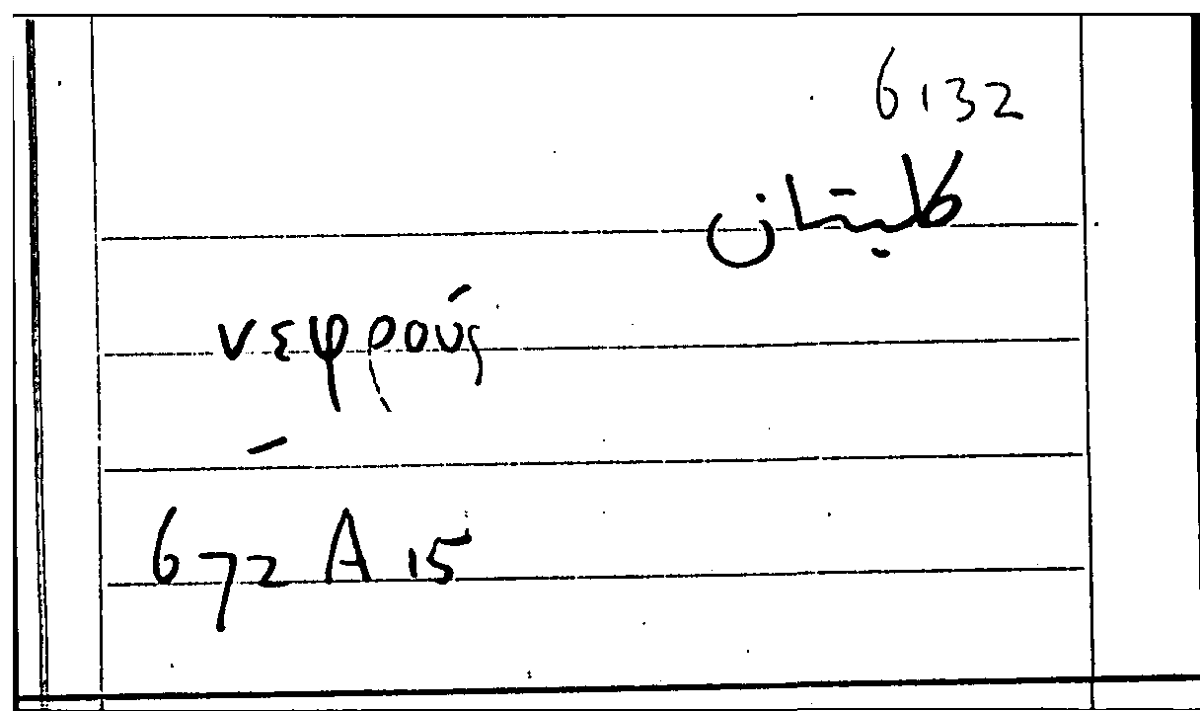 6132
كليتان
νεφρούς
–
672 A 15